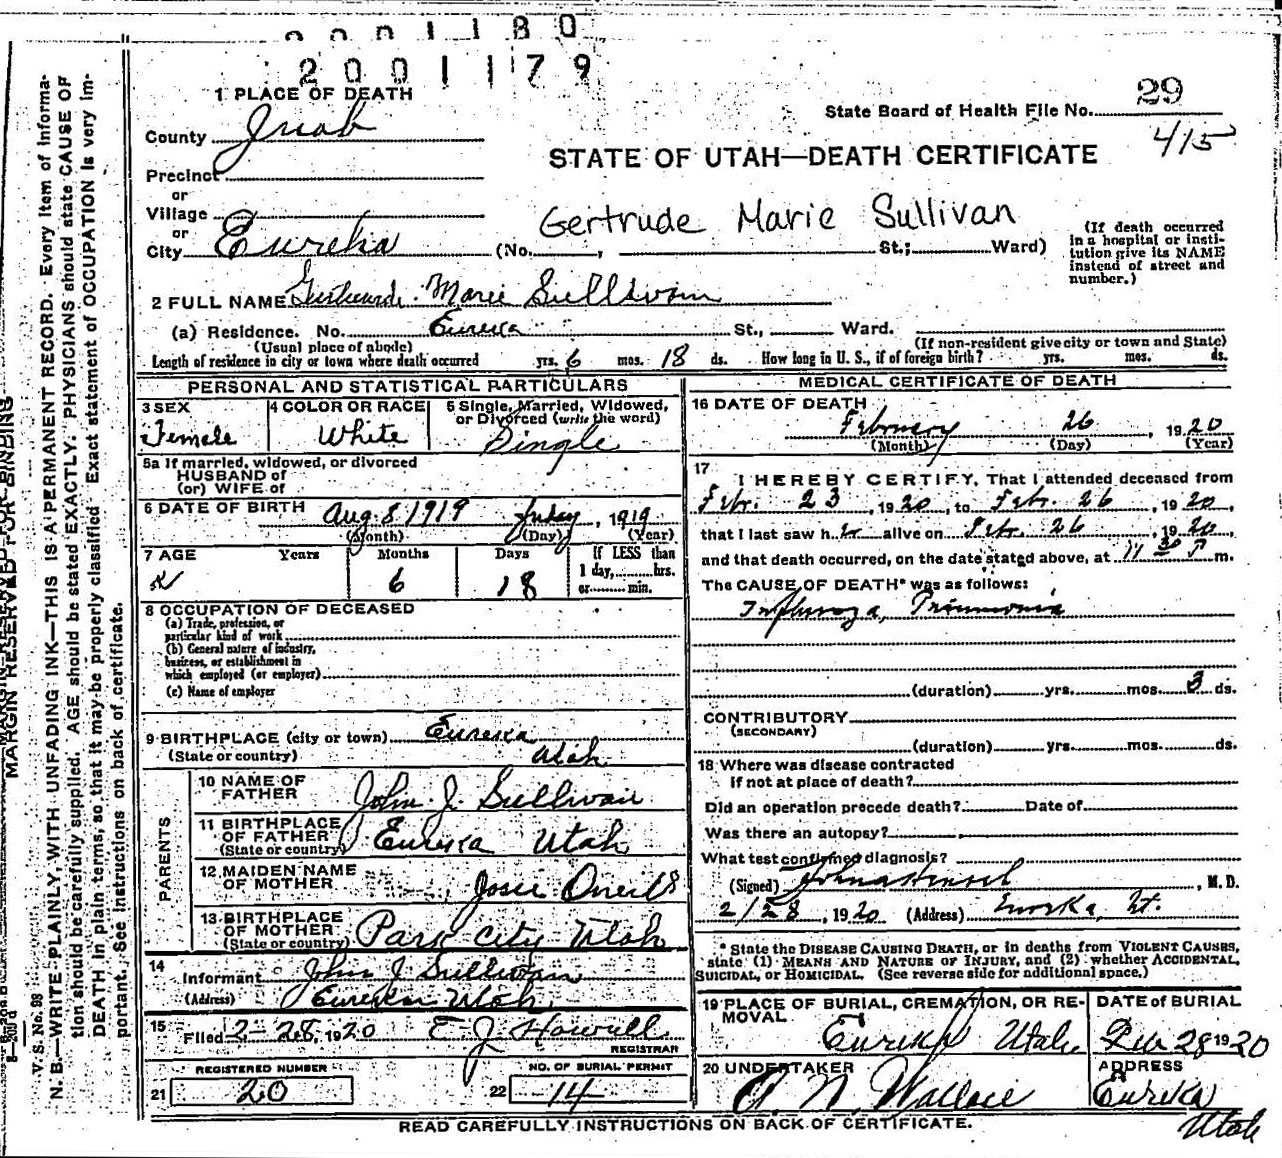 2001180
2001179
1 PLACE OF DEATH
State Board of Health File No. 29
County Juab
415
STATE OF UTAH—DEATH CERTIFICATE
Precinct
or
Village
Gertrude Marie Sullivan
or
City Eureka (No. , St.; Ward)
(If death occurred in a hospital or institution give its NAME instead of street and number.)
2 FULL NAME Marie Sullivan
(a) Residence. No. Eureka St., Ward.
(Usual place of abode) (If non-resident give city or town and State)
Length of residence in city or town where death occurred yrs. 6 mos. 18 ds. How long in U. S., if of foreign birth? yrs. mos. ds.
PERSONAL AND STATISTICAL PARTICULARS
3 SEX Female
4 COLOR OR RACE White
5 Single, Married, Widowed, or Divorced (write the word) Single
5a If married, widowed, or divorced
HUSBAND of
(or) WIFE of
6 DATE OF BIRTH Aug 8 1919 Friday, 1919
(Month) (Day) (Year)
7 AGE Years Months Days If LESS than
6 18 1 day, hrs.
or min.
8 OCCUPATION OF DECEASED
(a) Trade, profession, or
particular kind of work
(b) General nature of industry,
business, or establishment in
which employed (or employer)
(c) Name of employer
9 BIRTHPLACE (city or town) Eureka
(State or country) Utah
PARENTS
10 NAME OF FATHER John J. Sullivan
11 BIRTHPLACE OF FATHER (State or country) Eureka Utah
12 MAIDEN NAME OF MOTHER Josie Oneill
13 BIRTHPLACE OF MOTHER (State or country) Park City Utah
14 Informant John J Sullivan
(Address) Eureka Utah
15 Filed 2-28, 1920 E. J. Howell
REGISTRAR
REGISTERED NUMBER
21 20
NO. OF BURIAL PERMIT
22 14
MEDICAL CERTIFICATE OF DEATH
16 DATE OF DEATH
February 26, 1920
(Month) (Day) (Year)
17
I HEREBY CERTIFY, That I attended deceased from
Febr. 23, 1920, to Febr. 26, 1920,
that I last saw her alive on Febr. 26, 1920,
and that death occurred, on the date stated above, at 11 30 P m.
The CAUSE OF DEATH* was as follows:
Influenza, Pneumonia
(duration) yrs. mos. 3 ds.
CONTRIBUTORY
(SECONDARY)
(duration) yrs. mos. ds.
18 Where was disease contracted
if not at place of death?
Did an operation precede death? Date of
Was there an autopsy?
What test confirmed diagnosis?
(Signed) , M. D.
2/28, 1920 (Address) Eureka, Ut.
* State the DISEASE CAUSING DEATH, or in deaths from VIOLENT CAUSES,
state (1) MEANS AND NATURE OF INJURY, and (2) whether ACCIDENTAL,
SUICIDAL, or HOMICIDAL. (See reverse side for additional space.)
19 PLACE OF BURIAL, CREMATION, OR REMOVAL Eureka Utah.
DATE of BURIAL Feb 28 1920
20 UNDERTAKER A. N. Wallace
ADDRESS Eureka
Utah
READ CAREFULLY INSTRUCTIONS ON BACK OF CERTIFICATE.
MARGIN RESERVED FOR BINDING
V. S. No. 98
N. B.—WRITE PLAINLY, WITH UNFADING INK—THIS IS A PERMANENT RECORD. Every item of informa-
tion should be carefully supplied. AGE should be stated EXACTLY. PHYSICIANS should state CAUSE OF
DEATH in plain terms, so that it may be properly classified. Exact statement of OCCUPATION is very im-
portant. See instructions on back of certificate.